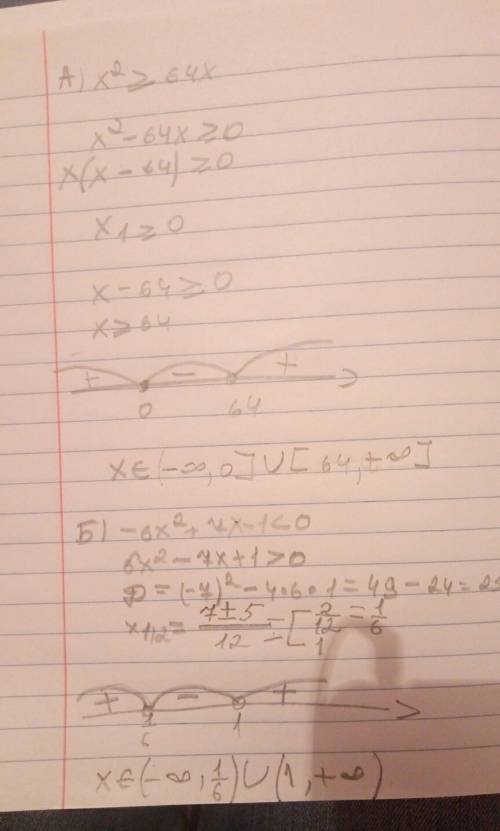 А) x² ≥ 64x
x² - 64x ≥ 0
x(x - 64) ≥ 0
x₁ ≥ 0
x - 64 ≥ 0
x ≥ 64
+ - +
0 64
x ∈ (-∞, 0] ∪ [64, +∞]
Б) -6x² + 7x - 1 < 0
6x² - 7x + 1 > 0
D = (-7)² - 4·6·1 = 49 - 24 = 25
x₁,₂ = (7 ± 5)/12 = [ 2/12 = 1/6
1
+ - +
1/6 1
x ∈ (-∞, 1/6) ∪ (1, +∞)